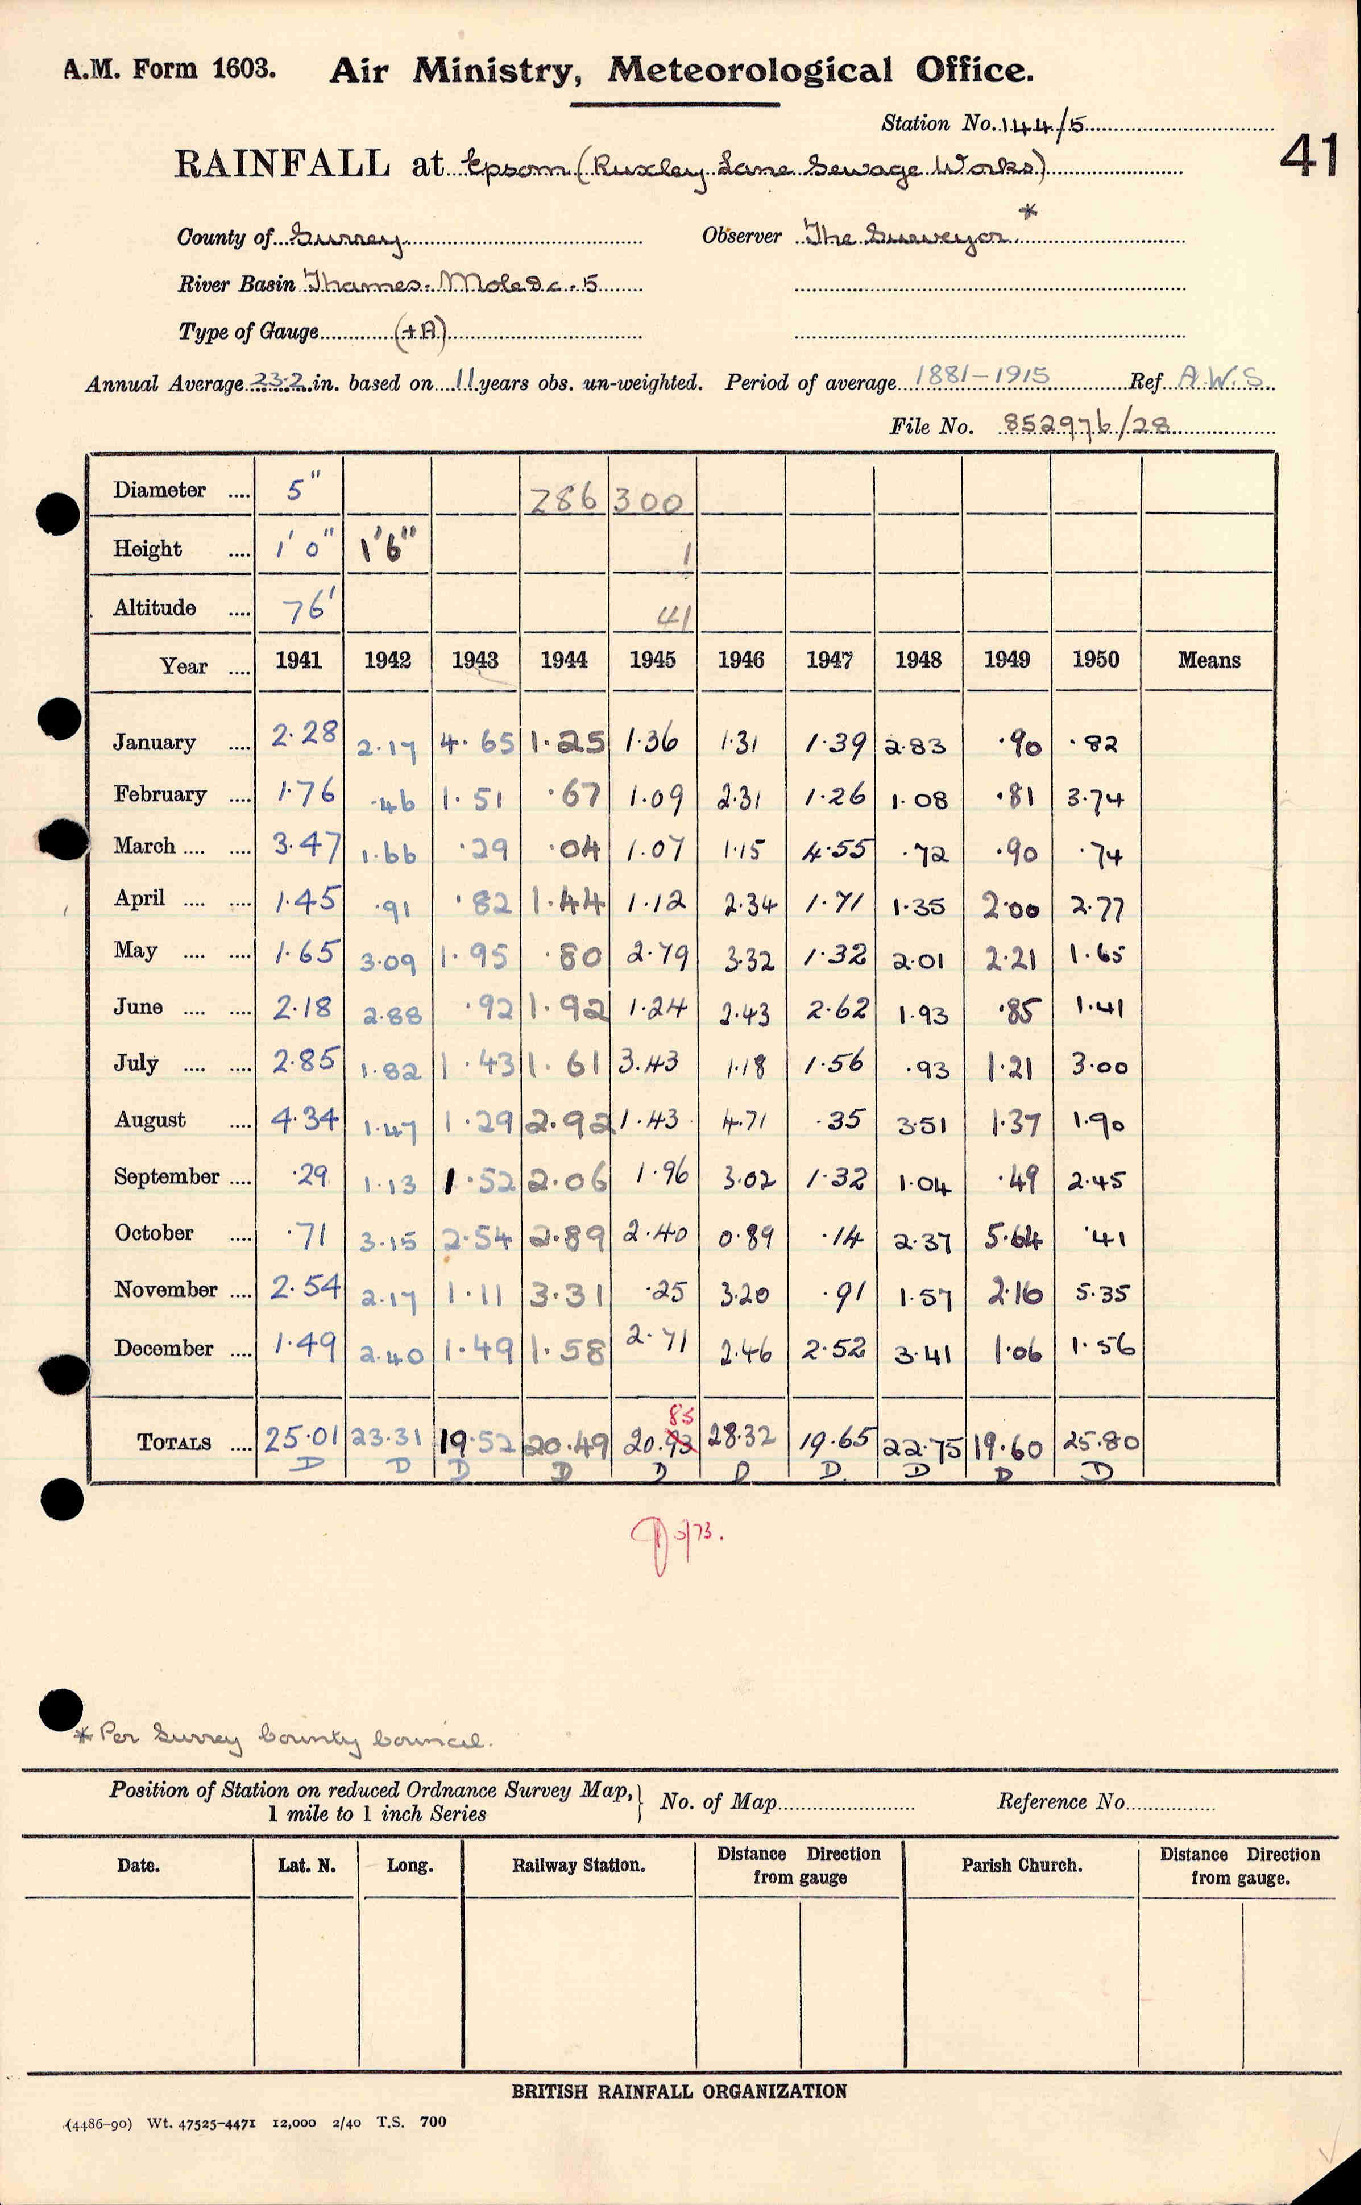 A.M. Form 1603. Air Ministry, Meteorological Office.
Station No. 144/5
41
RAINFALL at Epsom (Ruxley Lane Sewage Works)
County of Surrey Observer The Surveyor *
River Basin Thames. Mole &c. 5
Type of Gauge (+A)
Annual Average 23.2 in. based on 11 years obs. un-weighted. Period of average 1881-1915 Ref A.W.S.
File No. 852976/28
Diameter .... 5" 286 300
Height .... 1' 0" 1'6" 1
Altitude .... 76' 41
Year .... 1941 1942 1943 1944 1945 1946 1947 1948 1949 1950 Means
January .... 2.28 2.17 4.65 1.25 1.36 1.31 1.39 2.83 .90 .82
February .... 1.76 .46 1.51 .67 1.09 2.31 1.26 1.08 .81 3.74
March .... .... 3.47 1.66 .29 .04 1.07 1.15 4.55 .72 .90 .74
April .... .... 1.45 .91 .82 1.44 1.12 2.34 1.71 1.35 2.00 2.77
May .... .... 1.65 3.09 1.95 .80 2.79 3.32 1.32 2.01 2.21 1.65
June .... .... 2.18 2.88 .92 1.92 1.24 2.43 2.62 1.93 .85 1.41
July .... .... 2.85 1.82 1.43 1.61 3.43 1.18 1.56 .93 1.21 3.00
August .... 4.34 1.47 1.29 2.92 1.43 4.71 .35 3.51 1.37 1.90
September .... .29 1.13 1.52 2.06 1.96 3.02 1.32 1.04 .49 2.45
October .... .71 3.15 2.54 2.89 2.40 0.89 .14 2.37 5.64 .41
November .... 2.54 2.17 1.11 3.31 .25 3.20 .91 1.57 2.16 5.35
December .... 1.49 2.40 1.49 1.58 2.71 2.46 2.52 3.41 1.06 1.56
85
TOTALS .... 25.01 23.31 19.52 20.49 20.93 28.32 19.65 22.75 19.60 25.80
D D D D D D D D D D
* Per Surrey County Council.
Position of Station on reduced Ordnance Survey Map, } No. of Map Reference No.
1 mile to 1 inch Series
Date. Lat. N. Long. Railway Station. Distance Direction from gauge Parish Church. Distance Direction from gauge.
BRITISH RAINFALL ORGANIZATION
(4486-90) Wt. 47525-4471 12,000 2/40 T.S. 700